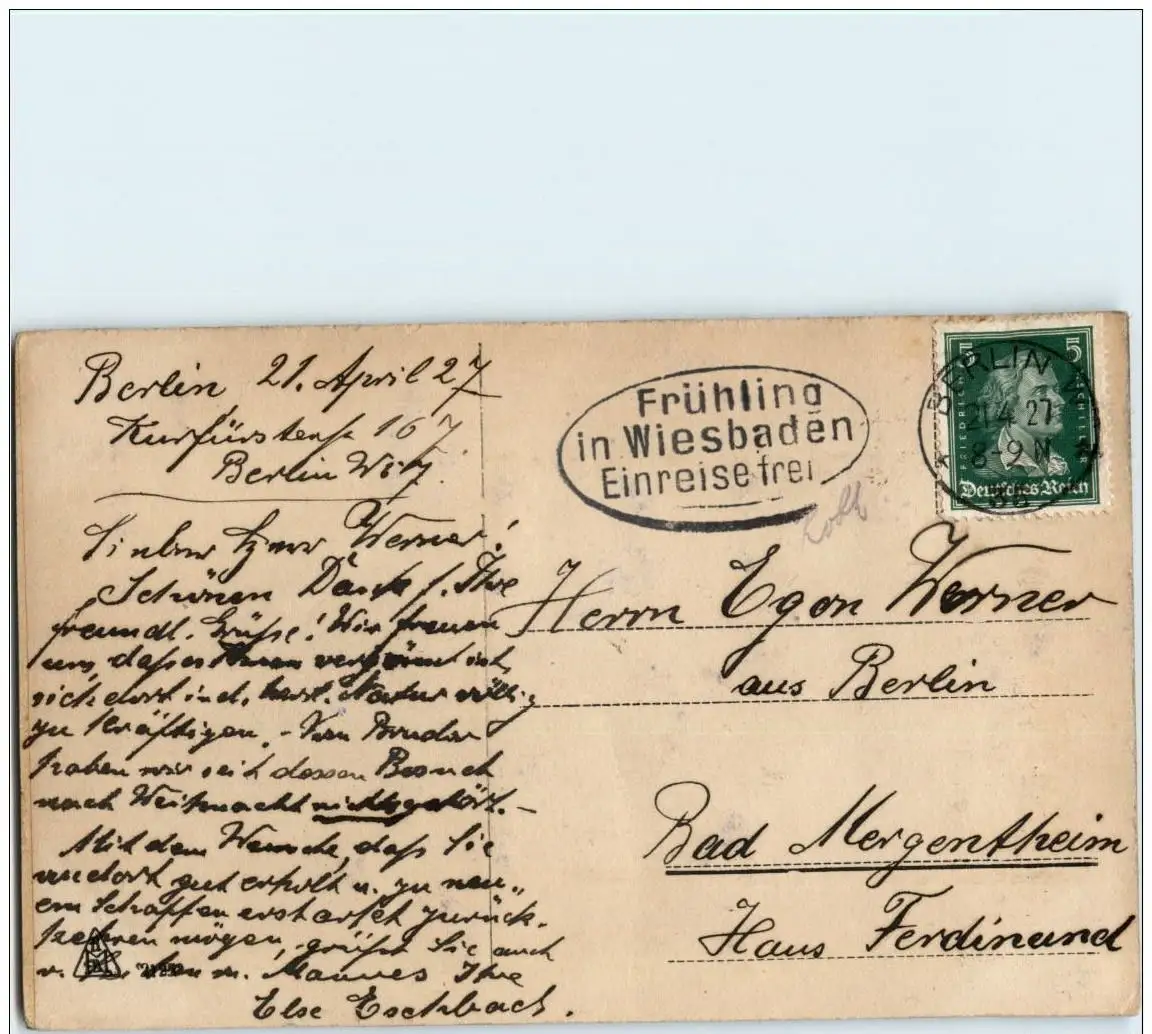 Berlin 21. April 27
Kurfürstenstr 167.
Berlin W57.
Lieber Herr Werner!
Schönen Dank f. Ihre
freundl. Grüße! Wir freuen
uns, daß es Ihnen vergönnt ist,
sich dort in d. Natur völlig
zu kräftigen. - Vom Bruder
haben wir seit dessen Besuch
nach Weihnacht nichts gehört. -
Mit dem Wunsche, daß Sie
gut erholt u. zu neu-
em Schaffen erstarkt zurück-
kehren mögen, grüßt Sie auch
m. Mannes Ihre
Else Eschbach.
Frühling
in Wiesbaden
Einreise frei
BERLIN W
21.4.27
8-9 N
5
5
FRIEDRICH
SCHILLER
Deutsches Reich
Herrn Egon Werner
aus Berlin
Bad Mergentheim
Haus Ferdinand